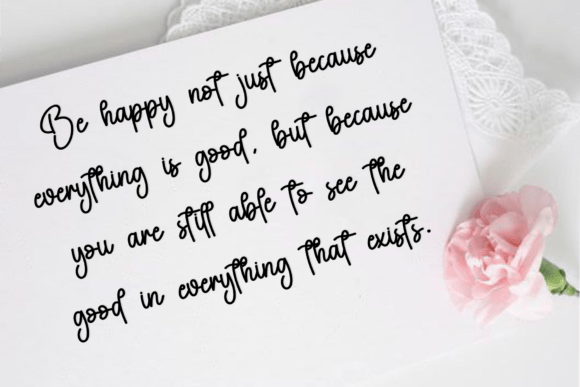 Be happy not just because
everything is good, but because
you are still able to see the
good in everything that exists.